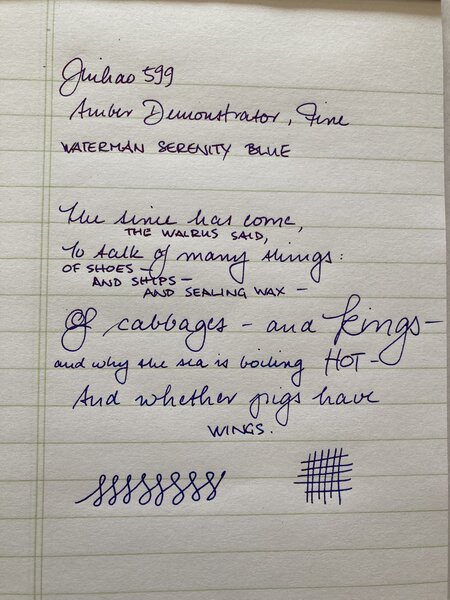 Jinhao 599
Amber Demonstrator, Fine
WATERMAN SERENITY BLUE
The time has come,
THE WALRUS SAID,
To talk of many things:
OF SHOES –
AND SHIPS –
AND SEALING WAX –
Of cabbages – and kings –
and why the sea is boiling HOT –
And whether pigs have
WINGS.